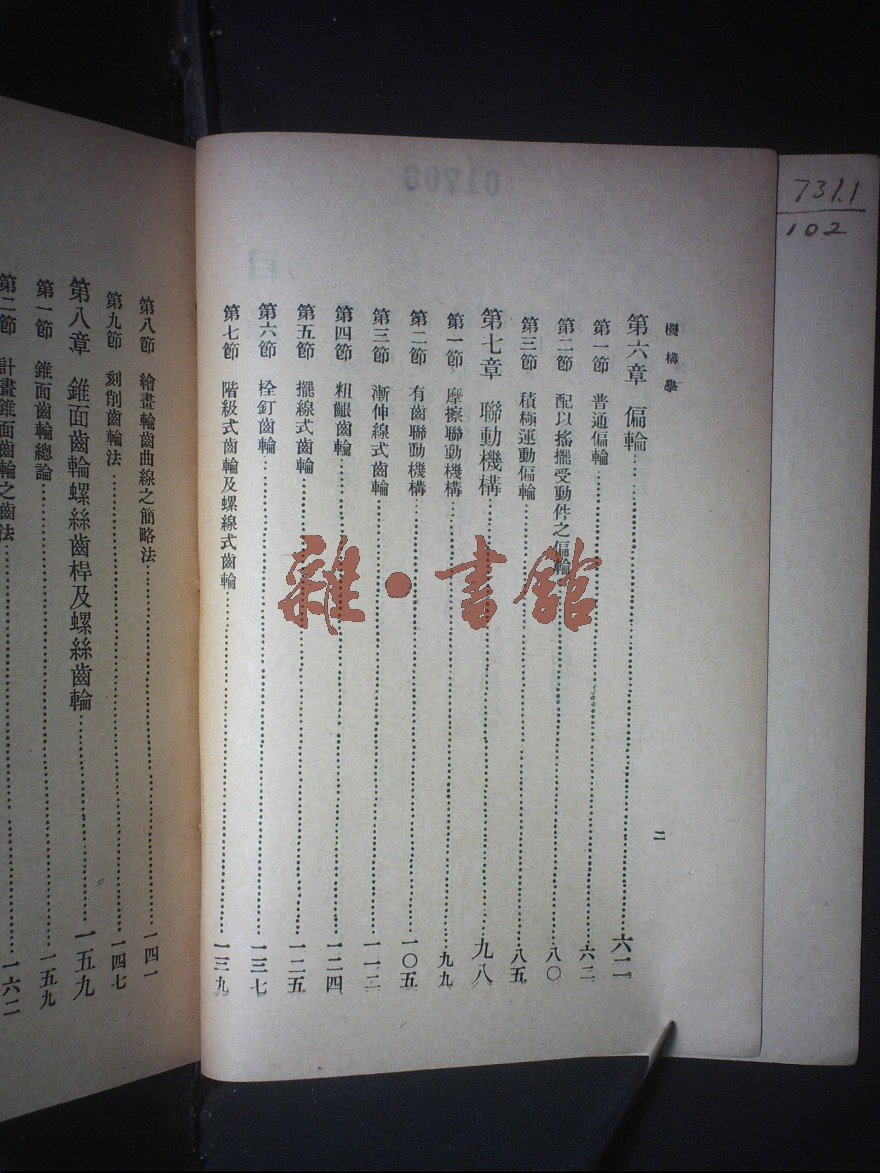 機構學
二
第六章 偏輪……六二
第一節 普通偏輪……六二
第二節 配以搖擺受動件之偏輪……八〇
第三節 積極運動偏輪……八五
第七章 聯動機構……九八
第一節 摩擦聯動機構……九九
第二節 有齒聯動機構……一〇五
第三節 漸伸線式齒輪……一一二
第四節 粗齦齒輪……一二四
第五節 擺線式齒輪……一二五
第六節 栓釘齒輪……一三七
第七節 階級式齒輪及螺線式齒輪……一三九
第八節 繪畫輪齒曲線之簡略法……一四一
第九節 刻削齒輪法……一四七
第八章 錐面齒輪螺絲齒桿及螺絲齒輪……一五九
第一節 錐面齒輪總論……一五九
第二節 計畫錐面齒輪之齒法……一六二
731.1
102
01706
雜·書館